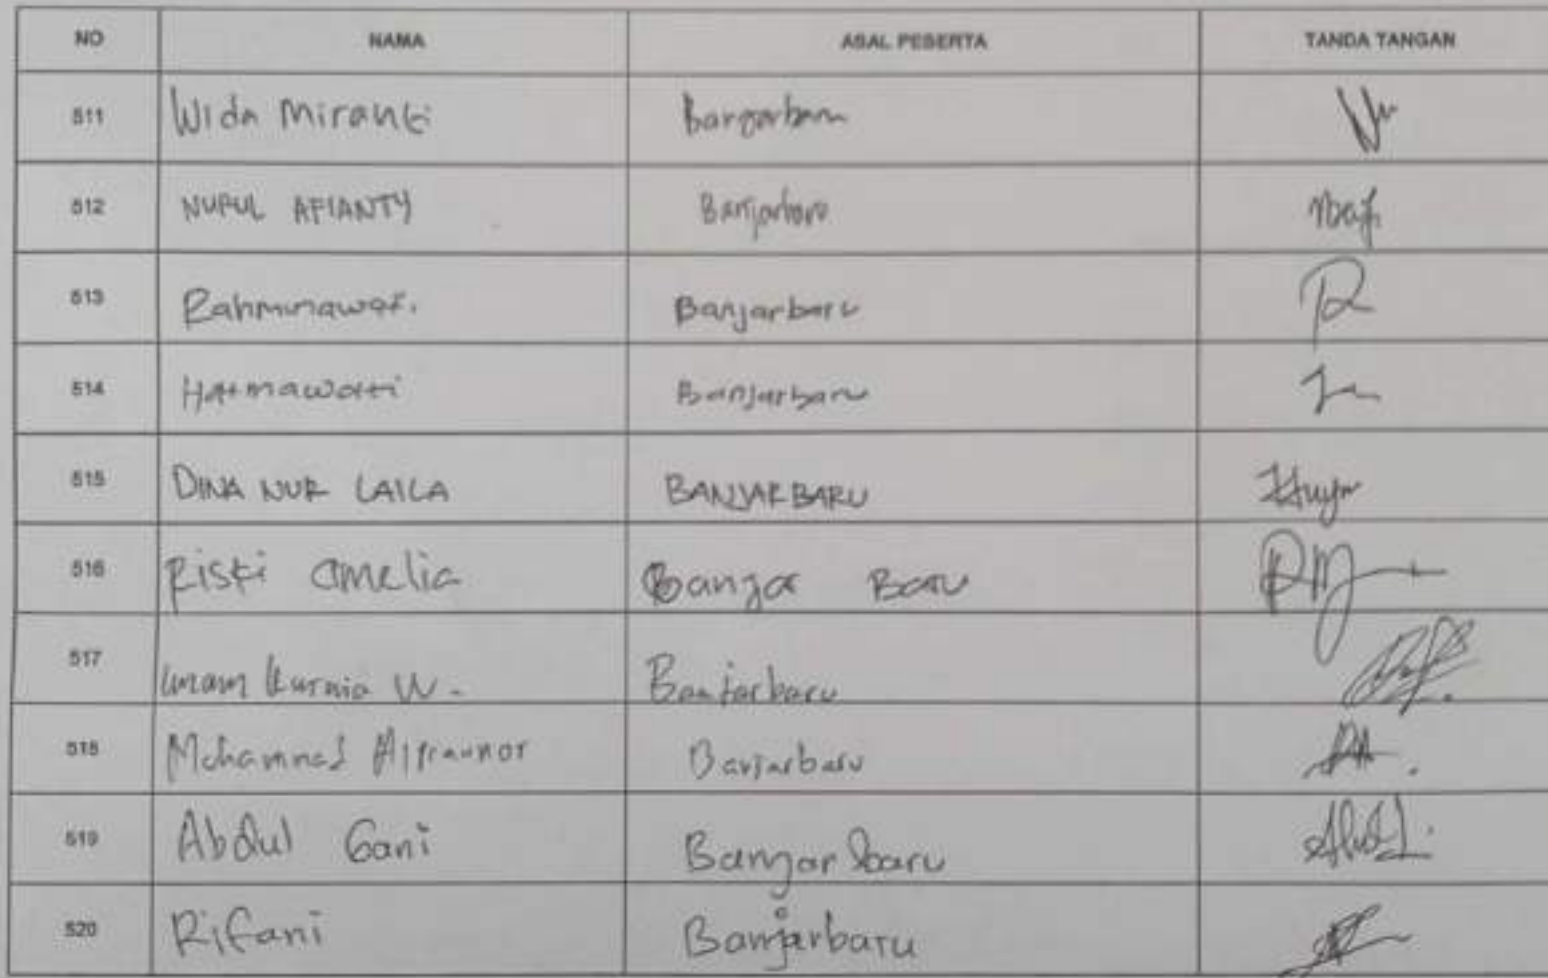 NO NAMA ASAL PESERTA TANDA TANGAN
511 Wida Miranti Banjarbaru
512 NURUL AFIANTY Banjarbaru
513 Rahminawati. Banjarbaru
514 Hatmawatti Banjarbaru
515 DINA NUR LAILA BANJARBARU
516 Riski amelia Banjar Baru
517 Imam Kurnia W. Banjarbaru
518 Mohammad Banjarbaru
519 Abdul Gani Banjarbaru
520 Rifani Banjarbaru